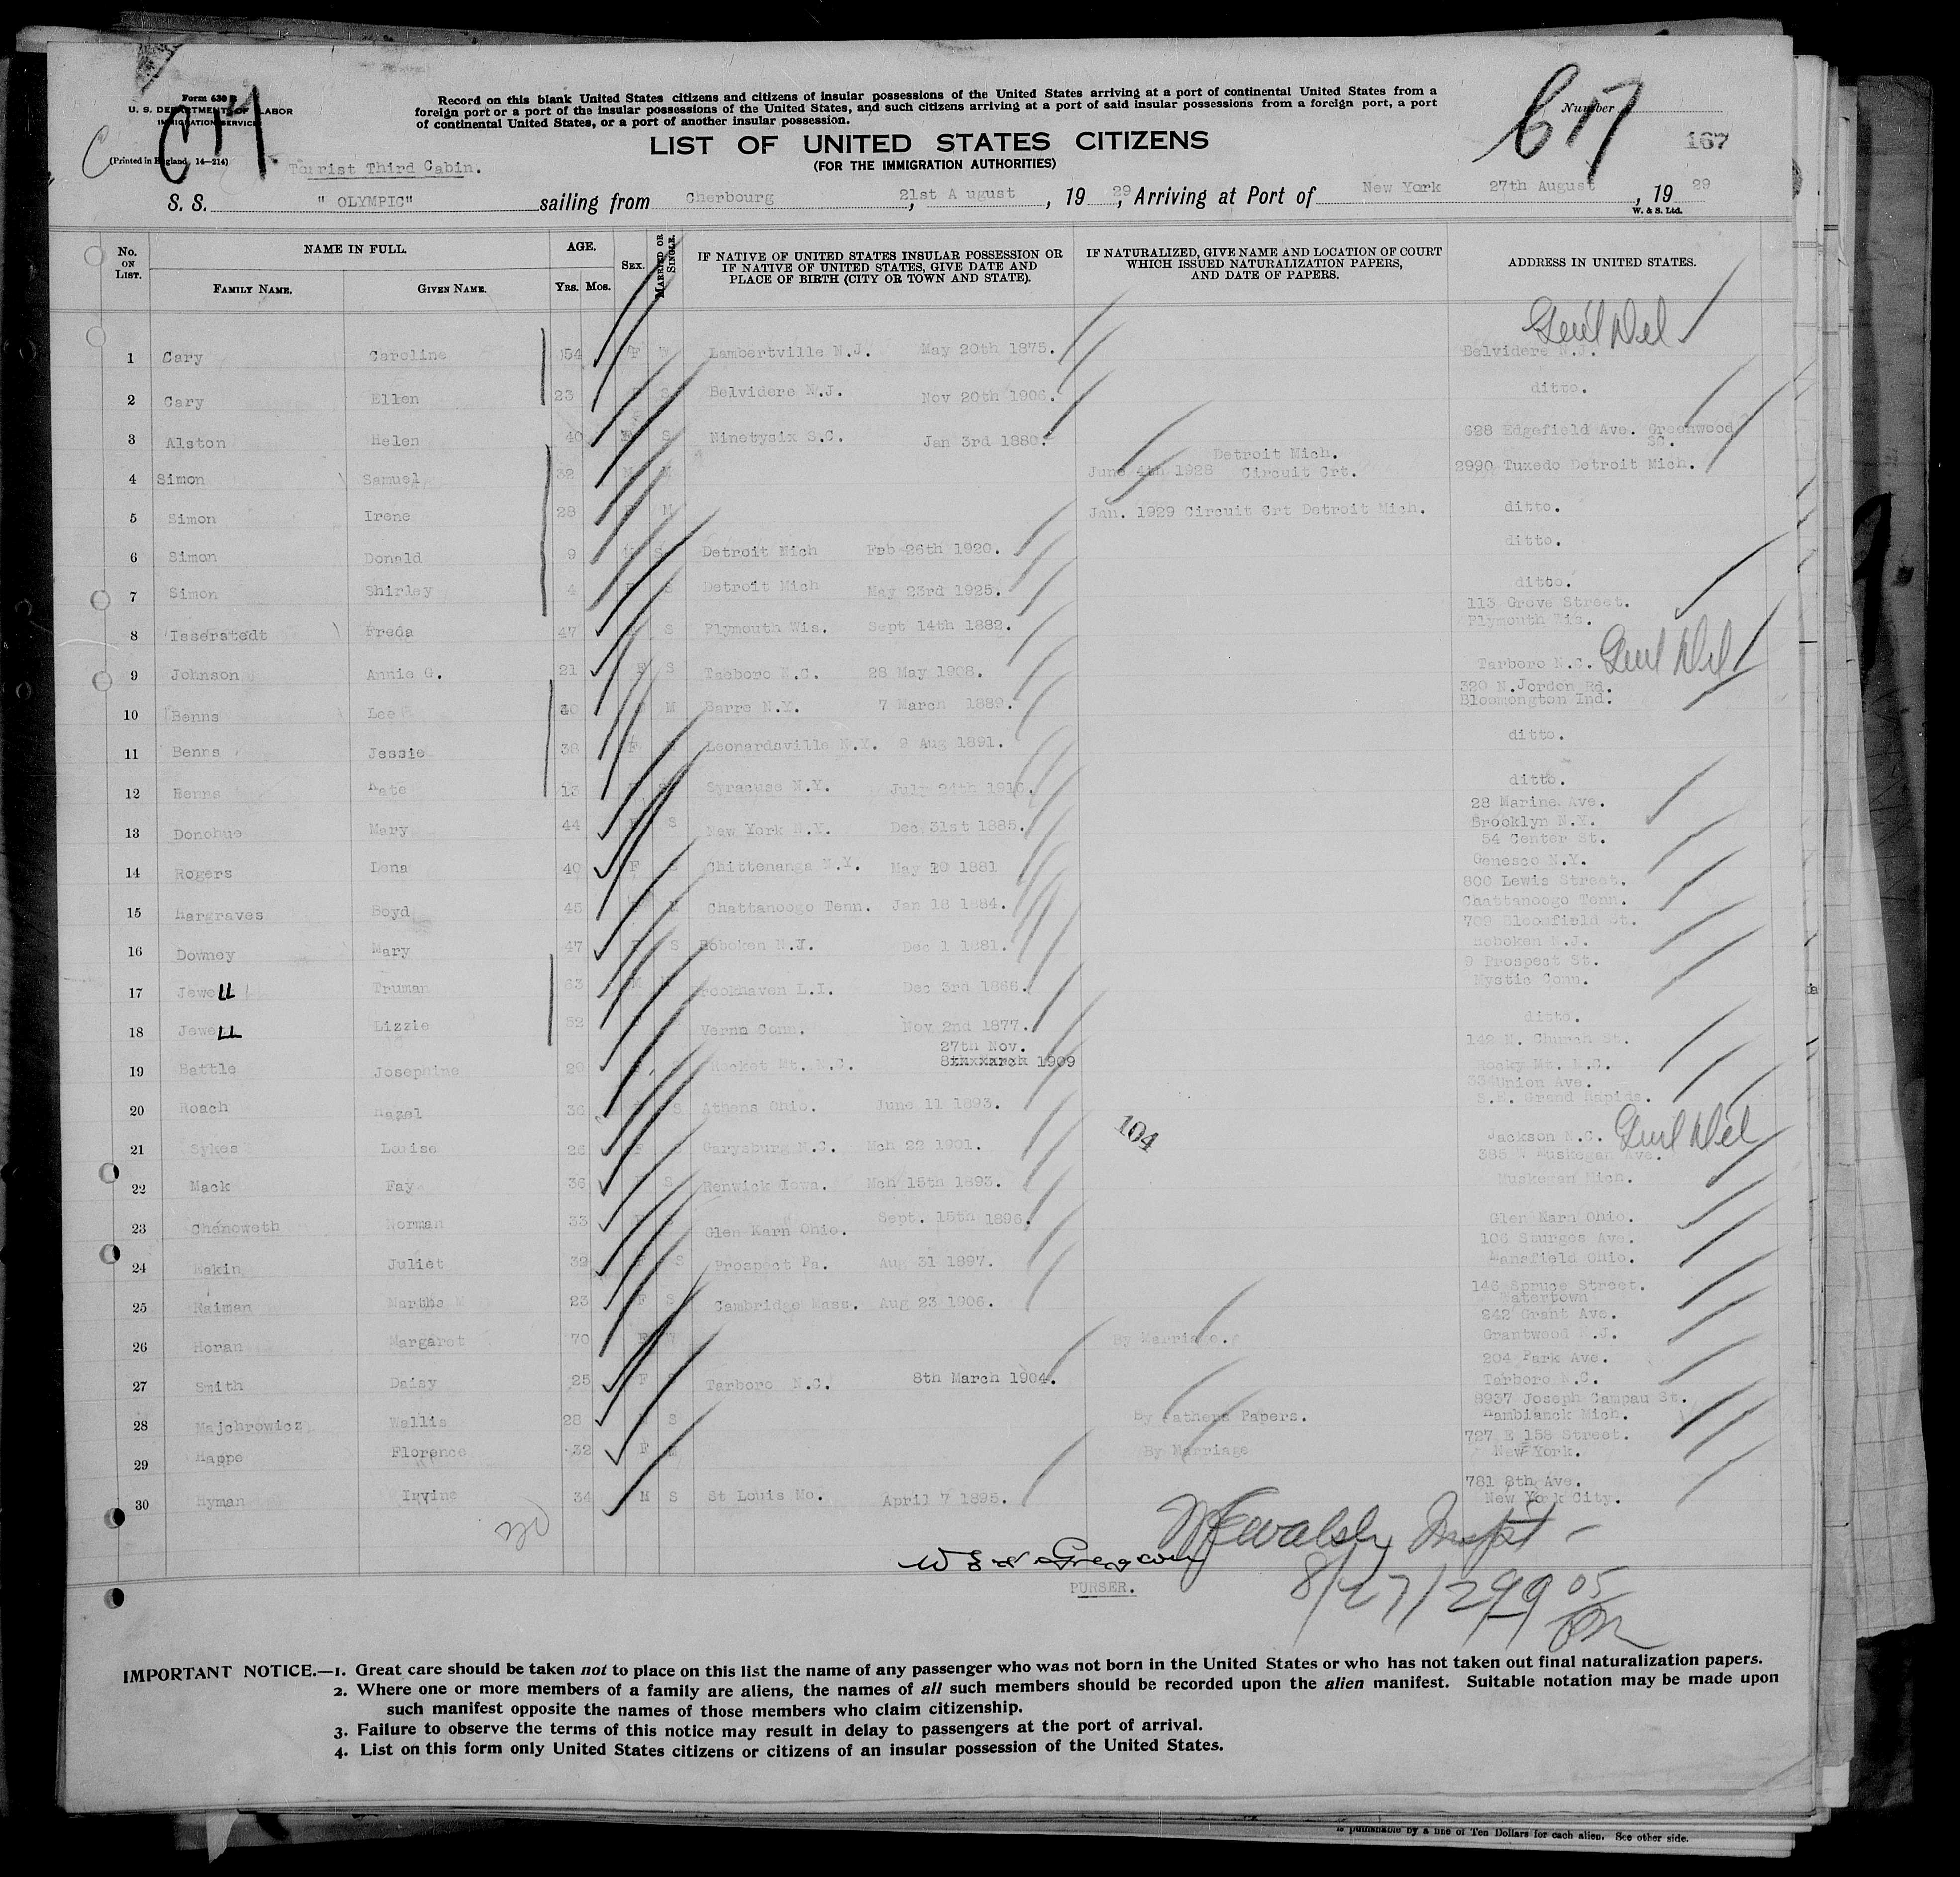 Form 630 B
U. S. DEPARTMENT OF LABOR
IMMIGRATION SERVICE
(Printed in England, 14—214)
Record on this blank United States citizens and citizens of insular possessions of the United States arriving at a port of continental United States from a
foreign port or a port of the insular possessions of the United States, and such citizens arriving at a port of said insular possessions from a foreign port, a port
of continental United States, or a port of another insular possession.
Number 617
167
LIST OF UNITED STATES CITIZENS
(FOR THE IMMIGRATION AUTHORITIES)
Tourist Third Cabin.
S. S. " OLYMPIC" sailing from Cherbourg, 21st A ugust, 19 29, Arriving at Port of New York 27th August, 19 29
W. & S. Ltd.
No. ON LIST. NAME IN FULL. FAMILY NAME. GIVEN NAME. AGE. YRS. MOS. SEX. MARRIED OR SINGLE. IF NATIVE OF UNITED STATES INSULAR POSSESSION OR IF NATIVE OF UNITED STATES, GIVE DATE AND PLACE OF BIRTH (CITY OR TOWN AND STATE). IF NATURALIZED, GIVE NAME AND LOCATION OF COURT WHICH ISSUED NATURALIZATION PAPERS, AND DATE OF PAPERS. ADDRESS IN UNITED STATES.
Genl Del
1 Cary Caroline 54 F W Lambertville N.J. May 20th 1875. Belvidere N.J.
2 Cary Ellen 23 S Belvidere N.J. Nov 20th 1906. ditto.
3 Alston Helen 40 S Ninetysix S.C. Jan 3rd 1880. 628 Edgefield Ave. Greenwood SC.
4 Simon Samuel 32 M M June 4th 1928 Detroit Mich. Circuit Crt. 2990 Tuxedo Detroit Mich.
5 Simon Irene 28 M Jan. 1929 Circuit Crt Detroit Mich. ditto.
6 Simon Donald 9 S Detroit Mich Feb 26th 1920. ditto.
7 Simon Shirley 4 S Detroit Mich May 23rd 1925. ditto.
8 Isserstedt Freda 47 S Plymouth Wis. Sept 14th 1882. 113 Grove Street. Plymouth Wis.
9 Johnson Annie G. 21 F S Tarboro N.C. 28 May 1908. Tarboro N.C. Genl Del
10 Benns Lee 40 M Barre N.Y. 7 March 1889. 320 N.Jorden Rd. Bloomongton Ind.
11 Benns Jessie 38 F Leonardsville N.Y. 9 Aug 1891. ditto.
12 Benns Kate 13 Syracuse N.Y. July 24th 1916. ditto.
13 Donohue Mary 44 S New York N.Y. Dec 31st 1885. 28 Marine Ave. Brooklyn N.Y.
14 Rogers Lena 40 F S Chittenanga N.Y. May 20 1881 54 Center St. Genesco N.Y.
15 Hargraves Boyd 45 M Chattanoogo Tenn. Jan 18 1884. 800 Lewis Street. Chattanoogo Tenn.
16 Downey Mary 47 S Hoboken N.J. Dec 1 1881. 709 Bloomfield St. Hoboken N.J.
17 JeweLL Truman 63 M Brookhaven L.I. Dec 3rd 1866. 9 Prospect St. Mystic Conn.
18 JeweLL Lizzie 52 Verna Conn. Nov 2nd 1877. ditto.
19 Battle Josephine 20 Rocket Mt. N.C. 27th Nov. 1909 142 N. Church St. Rocky Mt. N.C.
20 Roach Hazel 36 S Athens Ohio. June 11 1893. 334Union Ave. S.E. Grand Rapids.
21 Sykes Louise 28 F Garysburg N.C. Mch 22 1901. Jackson N.C. Genl Del
104
22 Mack Fay 36 S Renwick Iowa. Mch 15th 1893. 385 W Muskegan Ave. Muskegan Mich.
23 Chenoweth Norman 33 Glen Karn Ohio. Sept. 15th 1896. Glen Karn Ohio.
24 Eakin Juliet 32 F S Prospect Pa. Aug 31 1897. 106 Sturges Ave. Mansfield Ohio.
25 Raiman Martha M 23 F S Cambridge Mass. Aug 23 1906. 146 Spruce Street. Watertown
26 Horan Margaret 70 W By Marriage. 242 Grant Ave. Grantwood N.J.
27 Smith Daisy 25 F Tarboro N.C. 8th March 1904. 204 Park Ave. Tarboro N.C.
28 Majchrowicz Wallis 28 S By Fathers Papers. 8937 Joseph Campau St. Hambianck Mich.
29 Happe Florence 32 F M By Marriage 727 E 158 Street. New York.
30 Hyman Irvine 34 M S St Louis Mo. April 7 1895. 781 8th Ave. New York City.
30
Walsh Inspt
PURSER.
8/27/29
IMPORTANT NOTICE.—1. Great care should be taken not to place on this list the name of any passenger who was not born in the United States or who has not taken out final naturalization papers.
2. Where one or more members of a family are aliens, the names of all such members should be recorded upon the alien manifest. Suitable notation may be made upon
such manifest opposite the names of those members who claim citizenship.
3. Failure to observe the terms of this notice may result in delay to passengers at the port of arrival.
4. List on this form only United States citizens or citizens of an insular possession of the United States.
is punishable by a fine of Ten Dollars for each alien. See other side.